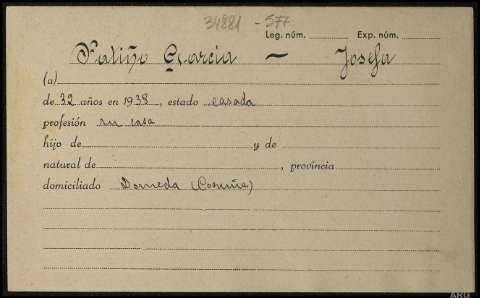 34881 - 577
Leg. núm. Exp. núm.
Patiño Garcia — Josefa
(a)
de 32 años en 1938, estado casada
profesión su casa
hijo de y de
natural de , provincia
domiciliado (Coruña)